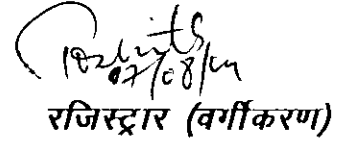 07/08/
रजिस्ट्रार (वर्गीकरण)